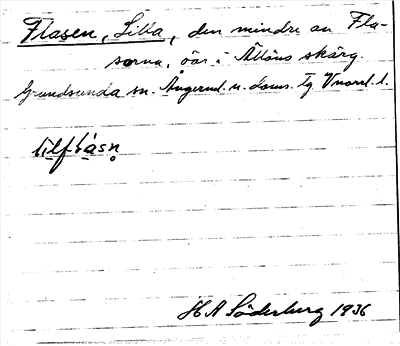 Flasen, Lilla, den mindre av Fla-
sarna, öar i Älvöns skärg.
Grundsunda sn. Ångerml. n. doms. tg. Vnorrl. l.
lìlflásn̥
H A Söderberg 1936